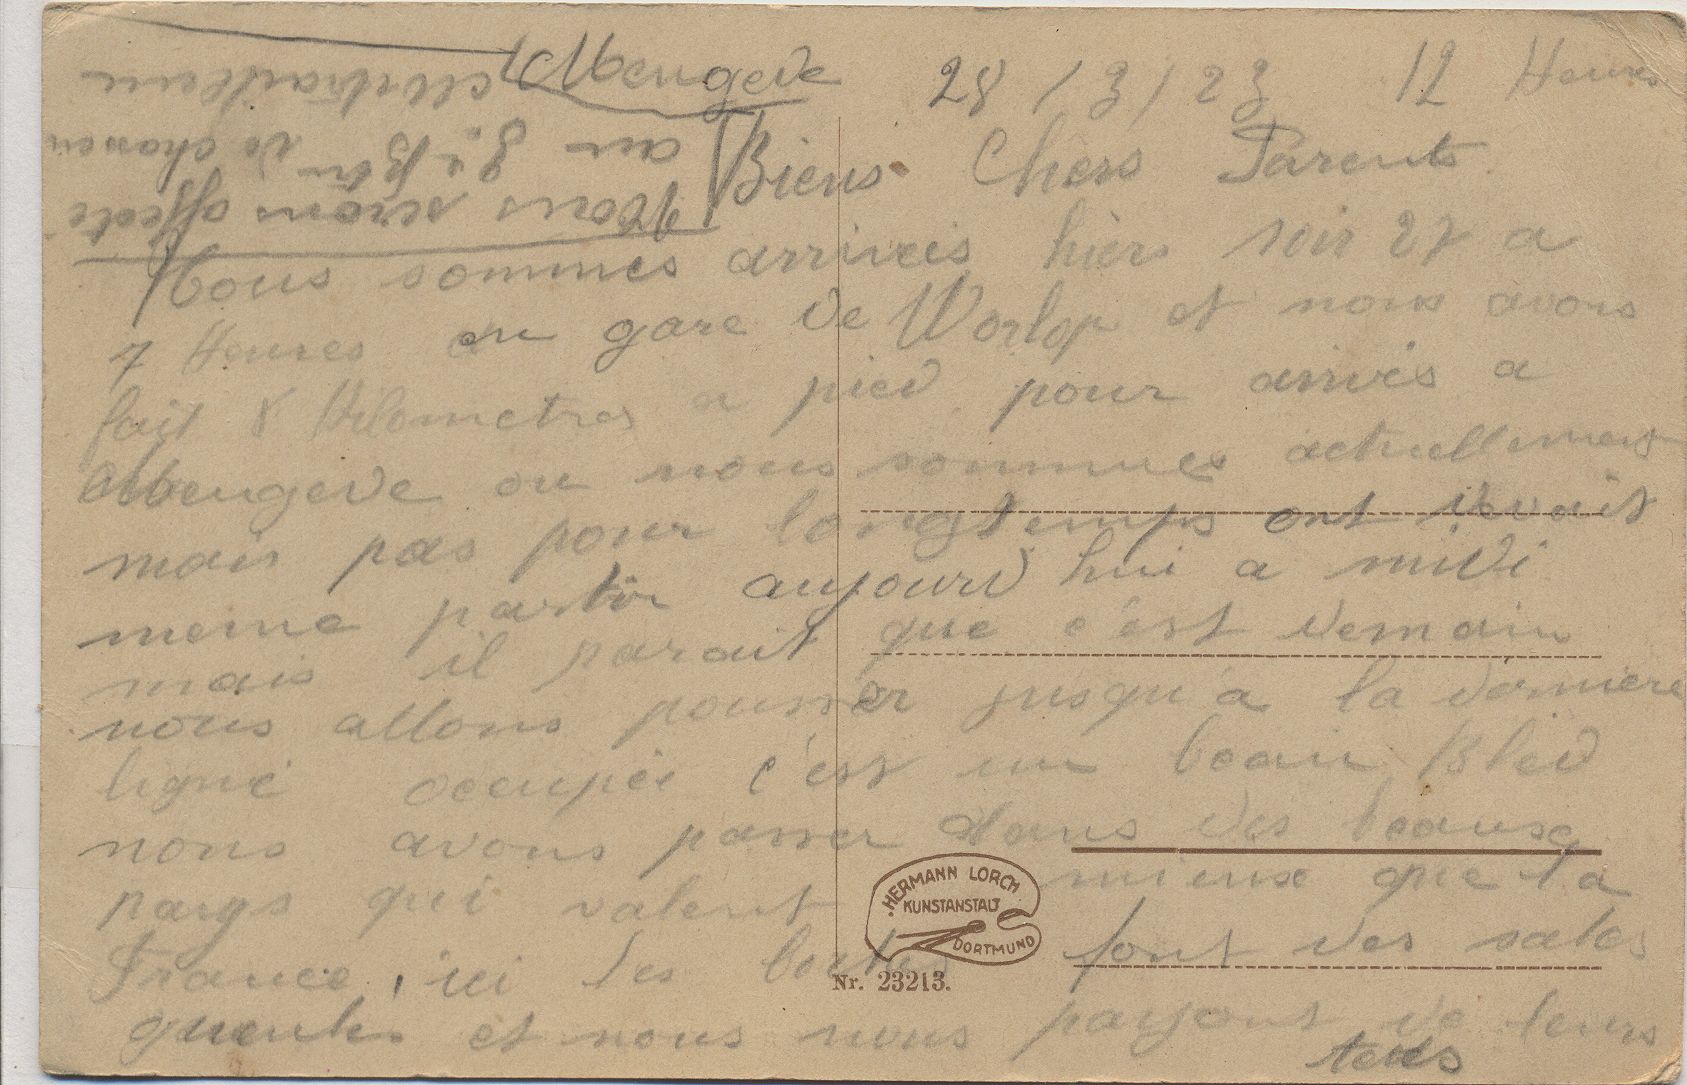 Mengede 28/3/23 12 Heures
Biens Chers Parents
Nous sommes arriveis hiers soir 27 a
7 Heures en gare de Worlop et nous avons
fait 8 Kilometres a pied pour arrivés a
Mengede ou nous sommes actuellement
mais pas pour longtemps ont devait
meme partir aujourd'hui a midi
mais il parait que c'est demain
nous allons pousser jusqu'a la dernière
ligne occupée c'est un beau Bled
nous avons passer dans des beause
pays qui valent mieuse que la
France, ici les boches font des sales
gueules et nous nous payons de leurs
tetes
Nous serons affecté
au 8e Bon de chasseur
mitrailleur
HERMANN LORCH
KUNSTANSTALT
DORTMUND
Nr. 23213.